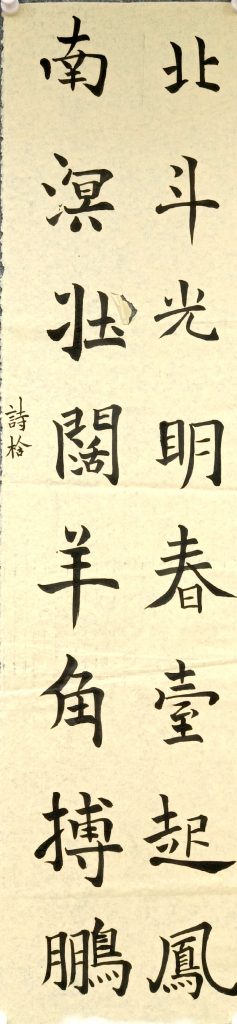 北斗光明春臺起鳳
南溟壯闊羊角搏鵬
詩栓